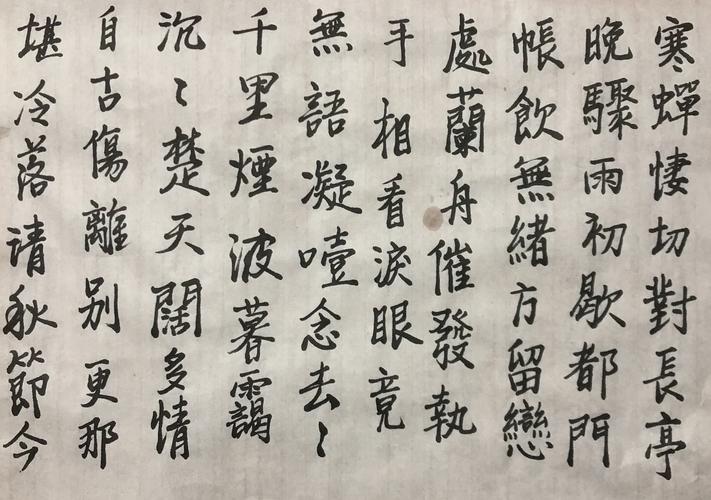 寒蟬悽切對長亭
晚驟雨初歇都門
帳飲無緒方留戀
處蘭舟催發執
手相看淚眼竟
無語凝噎念去〻
千里煙波暮靄
沉〻楚天闊多情
自古傷離别更那
堪冷落请秋節今